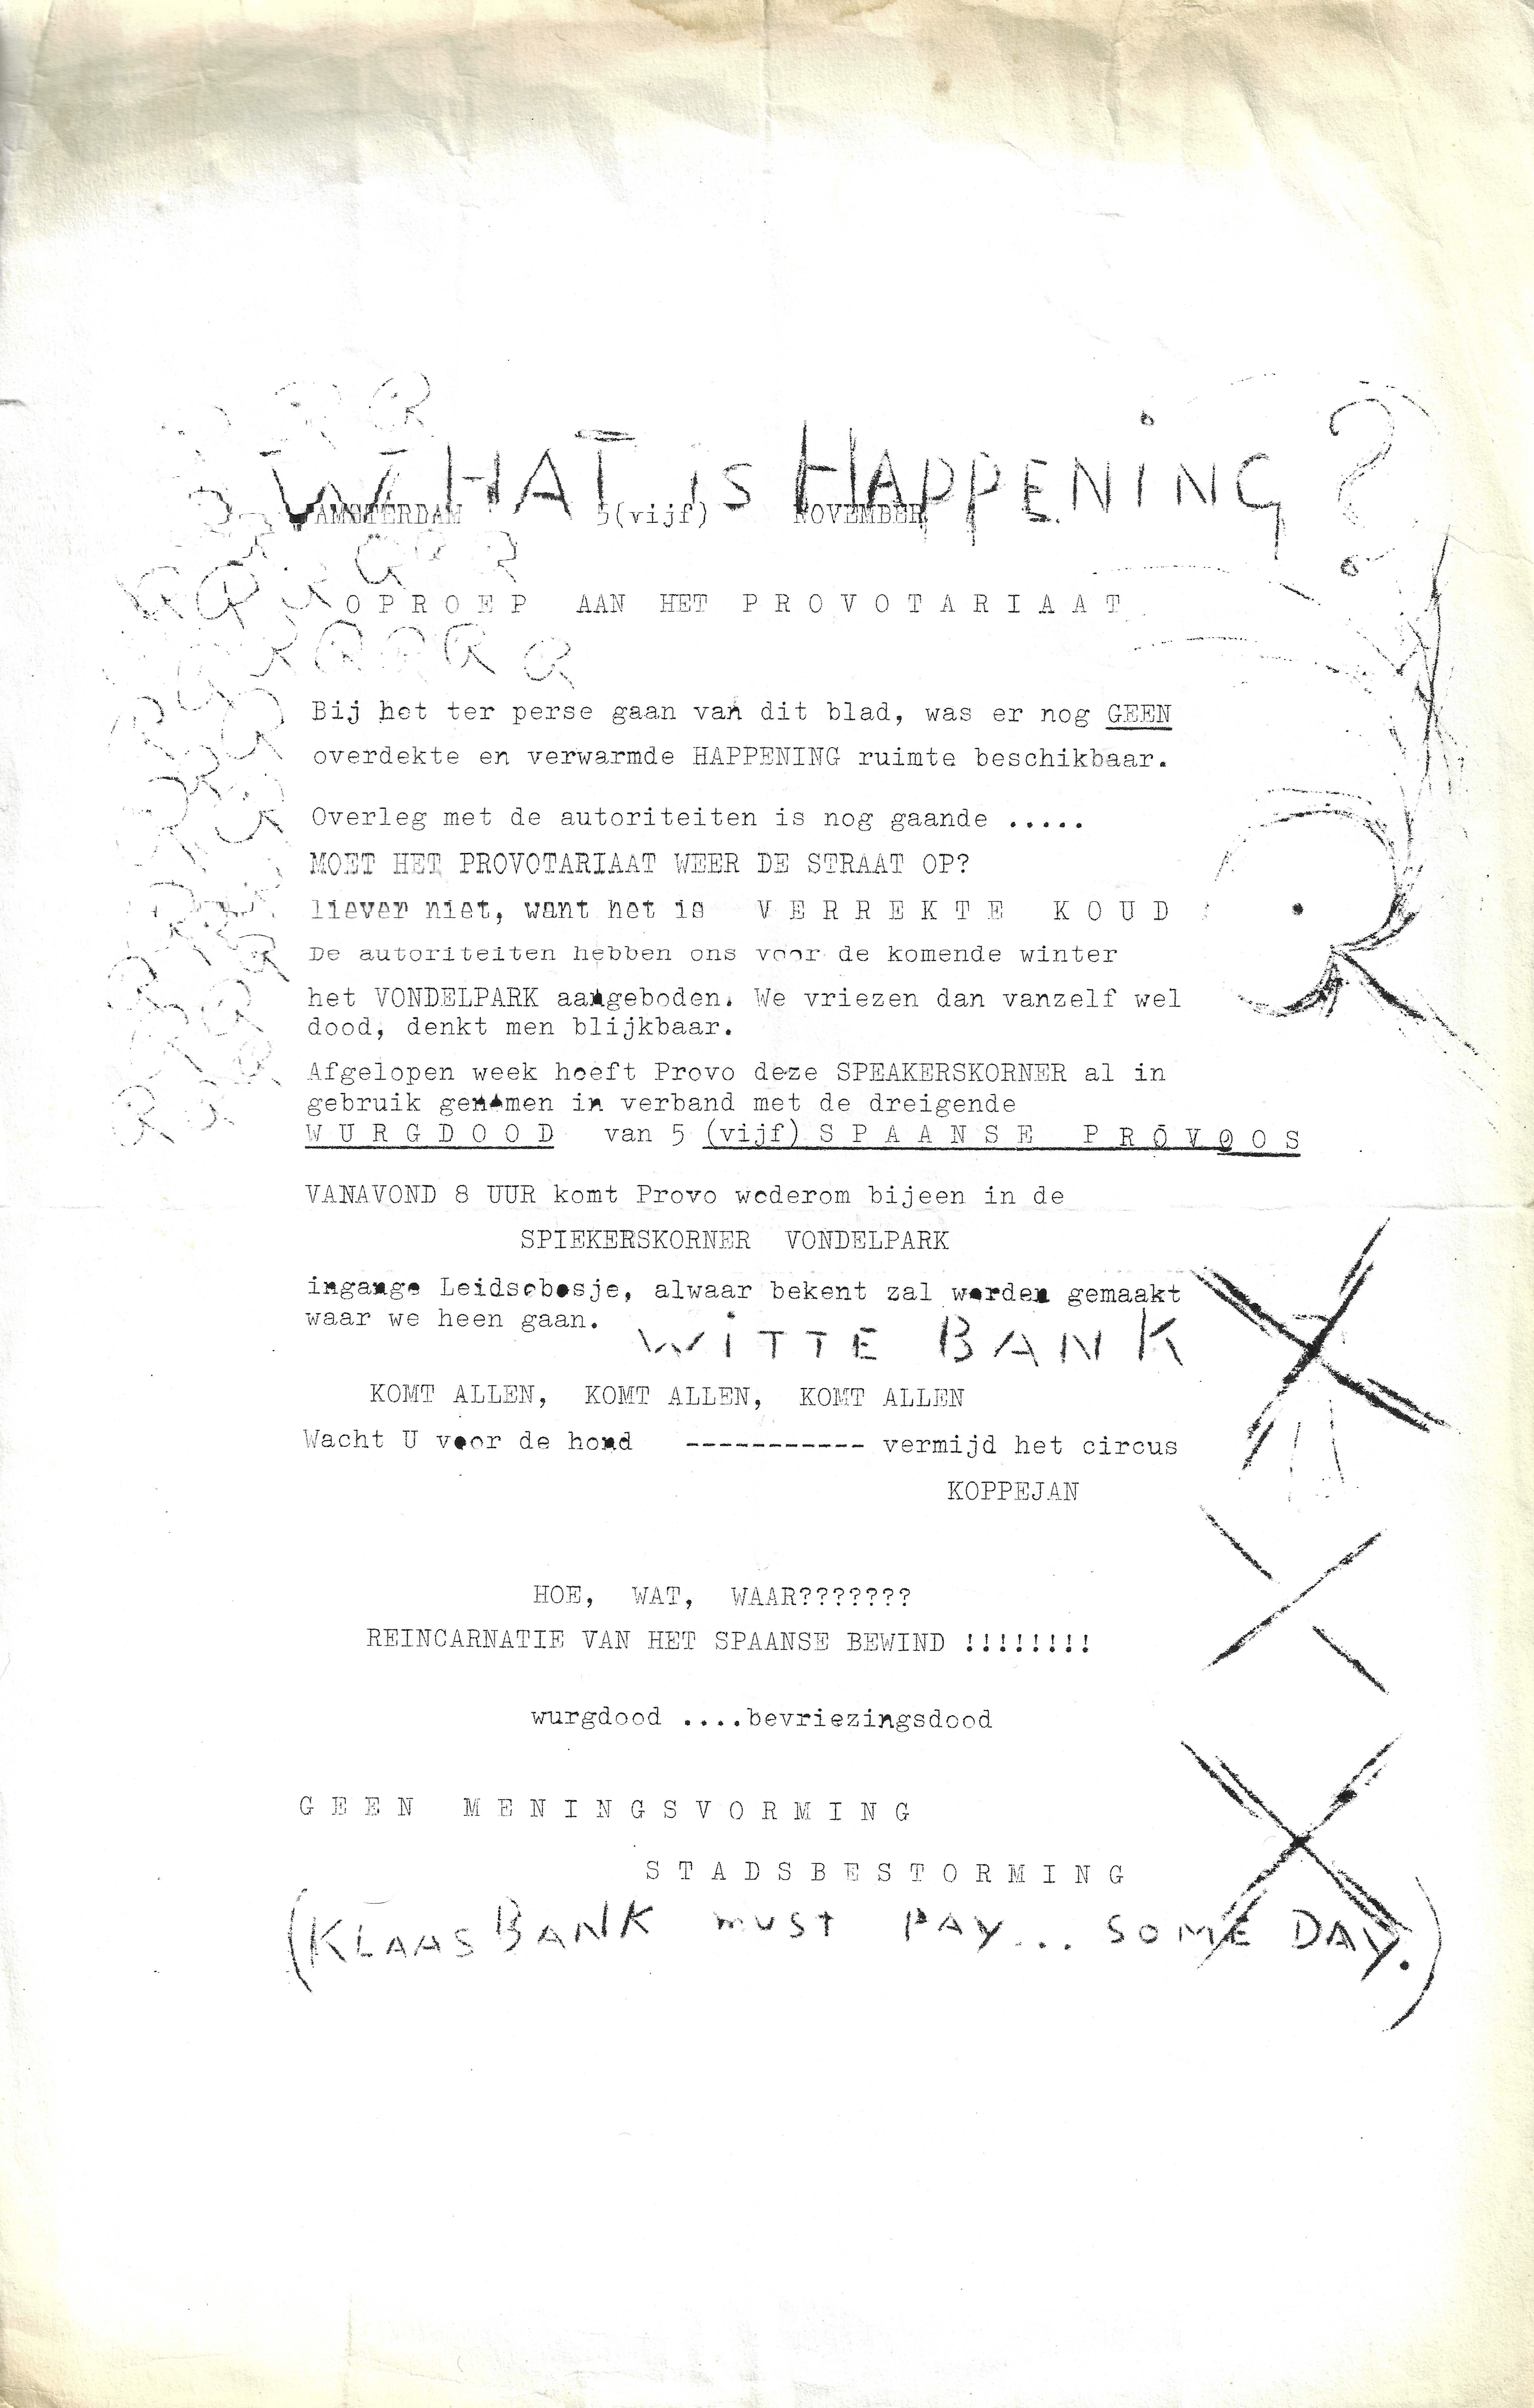 WHAT is HAPPENiNG?
AMSTERDAM 5(vijf) NOVEMBER
O P R O E P AAN HET P R O V O T A R I A A T
Bij het ter perse gaan van dit blad, was er nog GEEN
overdekte en verwarmde HAPPENING ruimte beschikbaar.
Overleg met de autoriteiten is nog gaande .....
MOET HET PROVOTARIAAT WEER DE STRAAT OP?
liever niet, want het is V E R R E K T E K O U D
De autoriteiten hebben ons voor de komende winter
het VONDELPARK aangeboden. We vriezen dan vanzelf wel
dood, denkt men blijkbaar.
Afgelopen week heeft Provo deze SPEAKERSKORNER al in
gebruik genomen in verband met de dreigende
W U R G D O O D van 5 (vijf) S P A A N S E P R O V O O S
VANAVOND 8 UUR komt Provo wederom bijeen in de
SPIEKERSKORNER VONDELPARK
ingange Leidsebosje, alwaar bekent zal worden gemaakt
waar we heen gaan.
WiTTE BANK
KOMT ALLEN, KOMT ALLEN, KOMT ALLEN
Wacht U voor de hond ----------- vermijd het circus
KOPPEJAN
HOE, WAT, WAAR???????
REINCARNATIE VAN HET SPAANSE BEWIND !!!!!!!!
wurgdood ....bevriezingsdood
G E E N M E N I N G S V O R M I N G
S T A D S B E S T O R M I N G
(KLAAS BANK MUST PAY... SOME DAY.)